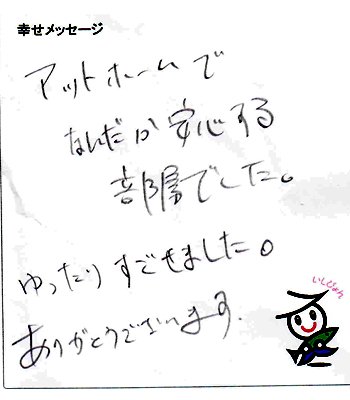 幸せメッセージ
アットホームで
なんだか安心する
部屋でした。
ゆったりすごせました。
ありがとうございます.
いしぴょん